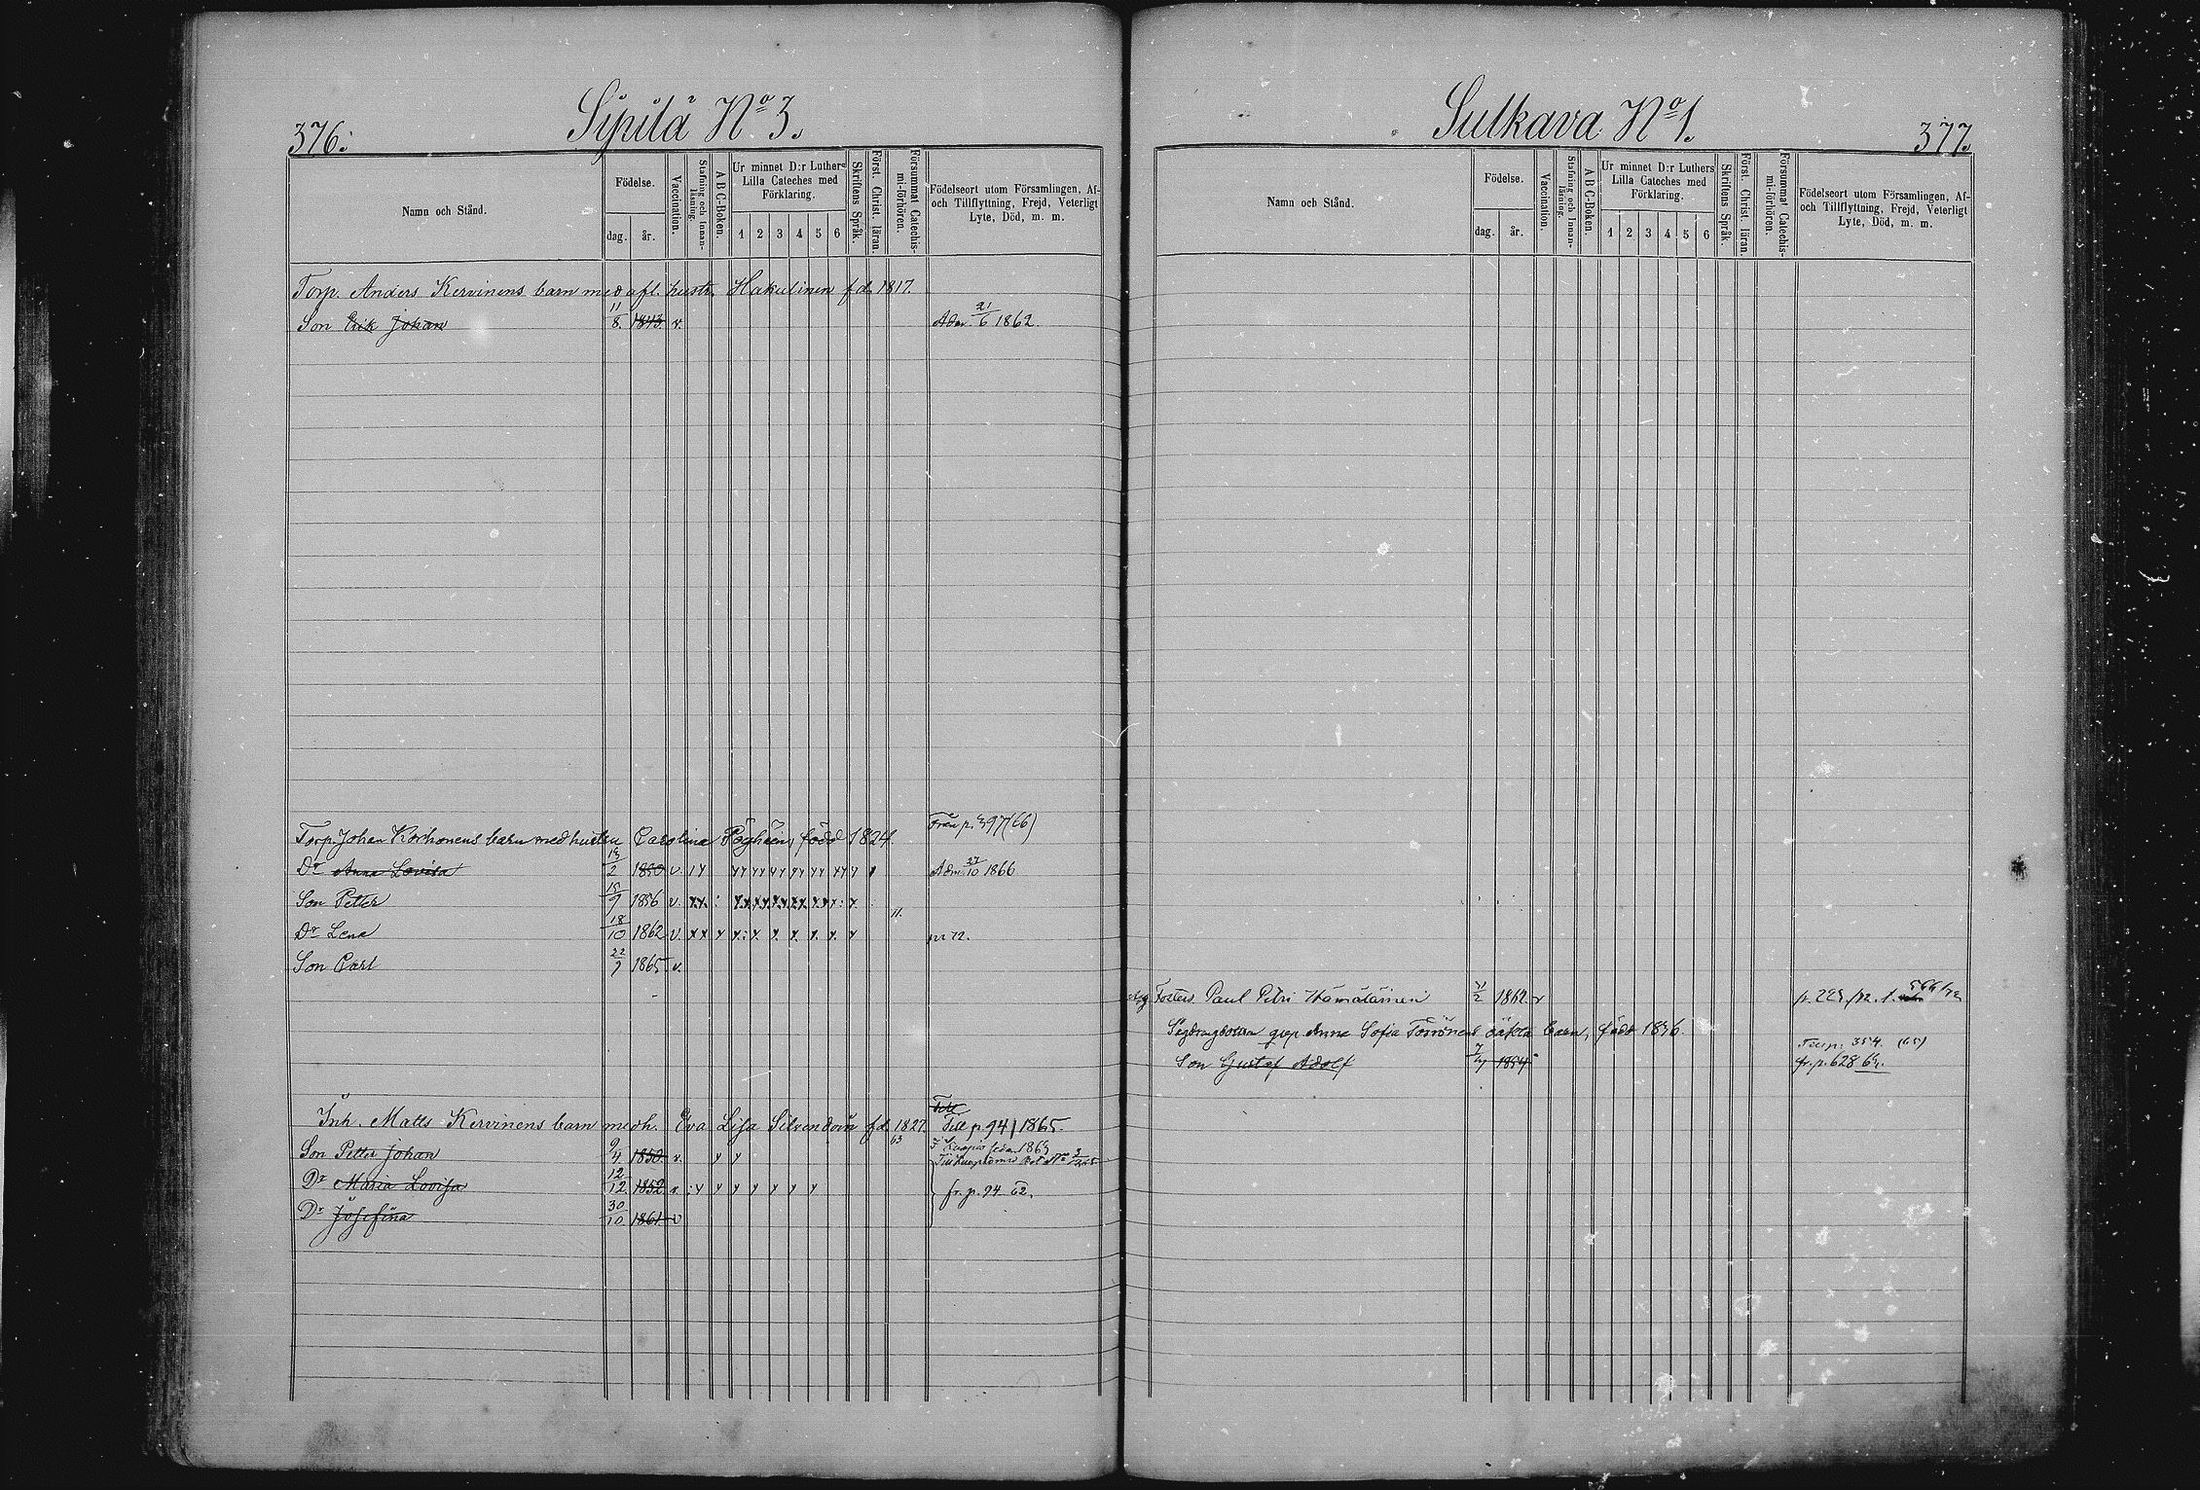 376. Sipilä No 3.
Namn och Stånd.
Födelse.
dag. år.
Vaccination.
Stafning och Innan-läsning.
A B C-Boken.
Ur minnet D:r Luthers
Lilla Cateches med
Förklaring.
1 2 3 4 5 6
Skriftens Språk.
Först. Christ. läran.
Försummat Catechis-mi-förhören.
Födelseort utom Församlingen, Af-
och Tillflyttning, Frejd, Veterligt
Lyte, Död, m. m.
Torp. Anders Kervinens barn med afl. hustr. Hakulinen fd. 1817.
Son Erik Johan 11/8 1843 v. Adm. 21/6 1862.
Från p. 397 (66)
Torp. Johan Korhonens barn med hustru Carolina född 1824.
Dr Anna Lovisa 1850 v. Adm. 27/10 1866
Son Petter 15/9 1856 v.
Dr Lena 18/10 1862 v.
Son Carl 22/9 1865 v.
Till
Inh. Matts Kervinens barn med h. Eva Lisa fd. 1827 Till p. 94 / 1865.
63
Son Petter Johan 9/4 1850. v.
Dr Maria Lovisa 12/12 1852 v. fr. p. 94 62.
Dr Josefina 30/10 1861 v
Sulkava No 1. 377.
Namn och Stånd.
Födelse.
dag. år.
Vaccination.
Stafning och Innan-läsning.
A B C-Boken.
Ur minnet D:r Luthers
Lilla Cateches med
Förklaring.
1 2 3 4 5 6
Skriftens Språk.
Först. Christ. läran.
Försummat Catechis-mi-förhören.
Födelseort utom Församlingen, Af-
och Tillflyttning, Frejd, Veterligt
Lyte, Död, m. m.
Paul Petri Hämäläinen 1862 v
Anna Sofia oäkta barn, född 1836.
Till p. 354. (65)
Son Gustaf Adolf 1854 fr. p. 628 64.